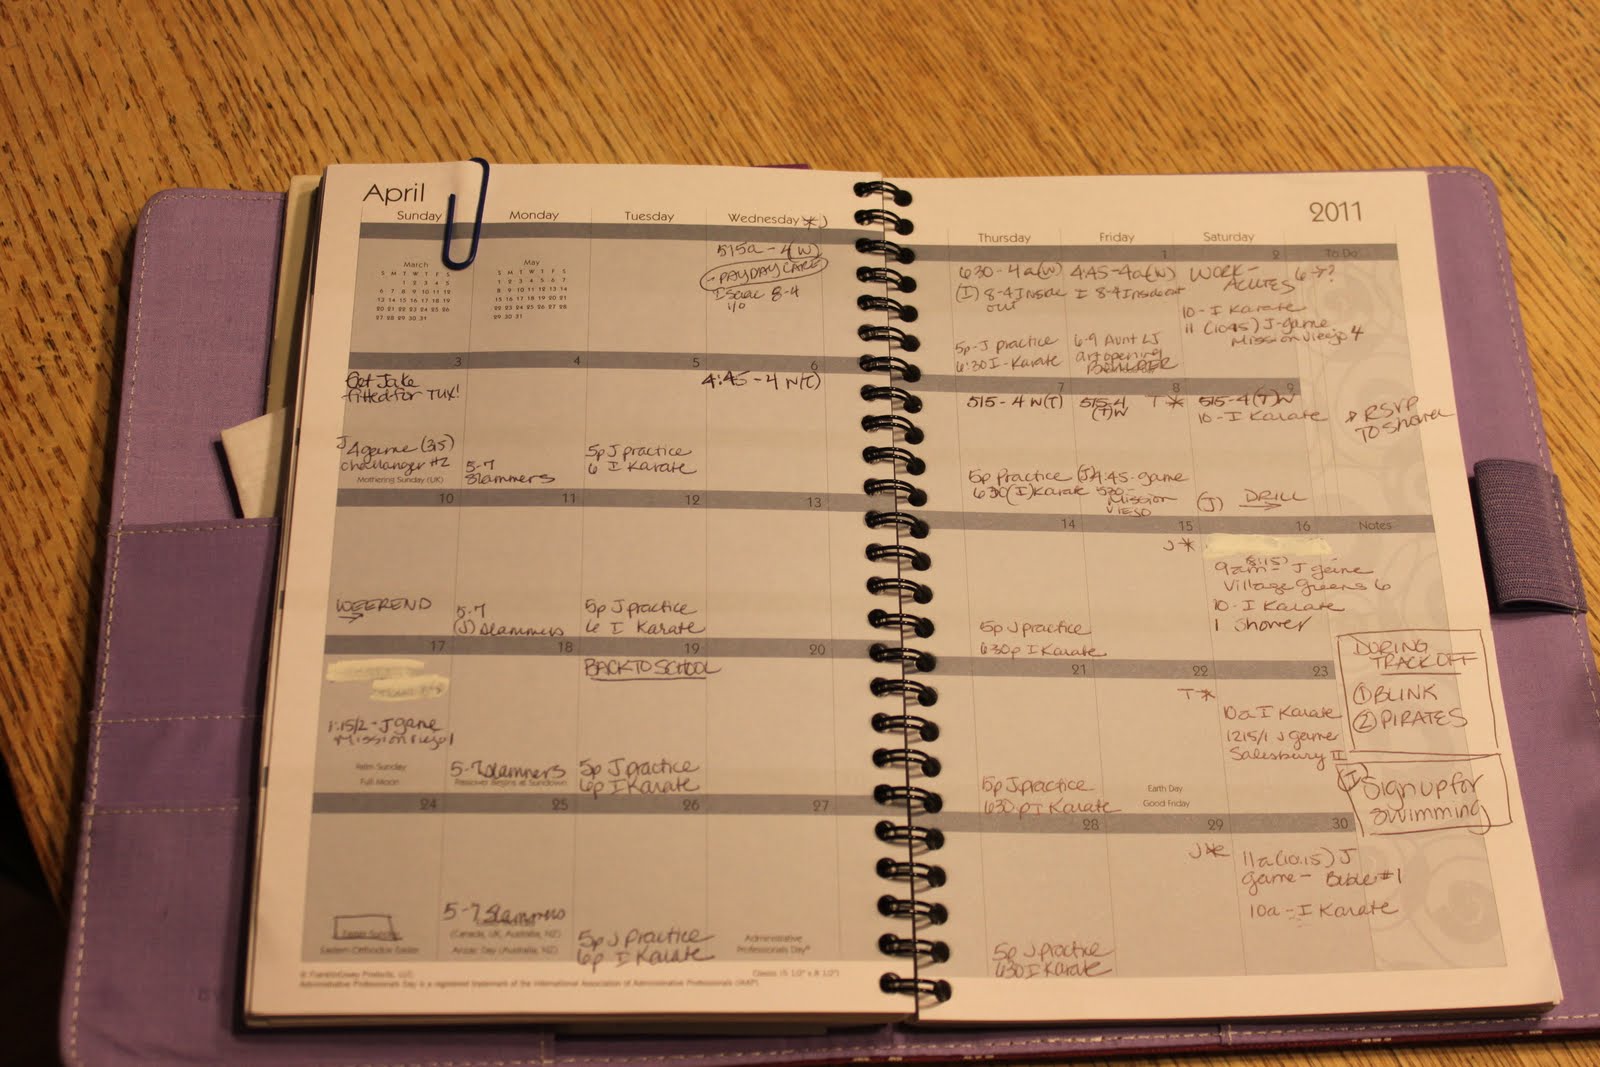 April
2011
Sunday Monday Tuesday Wednesday * J
Thursday Friday Saturday
1 2 To Do
March
S M T W T F S
1 2 3 4 5
6 7 8 9 10 11 12
13 14 15 16 17 18 19
20 21 22 23 24 25 26
27 28 29 30 31
May
S M T W T F S
1 2 3 4 5 6 7
8 9 10 11 12 13 14
15 16 17 18 19 20 21
22 23 24 25 26 27 28
29 30 31
515a - 4(W)
- PAY DAYCARE
Isaac 8-4
I/O
630 - 4a(W)
(I) 8-4 Inside
out
5p - J practice
6:30 I - Karate
4:45 - 4a(W)
I 8-4 Inside out
6-9 Aunt LJ
art opening
WORK -
10 - I Karate
11 (1045) J-game
Mission Viejo 4
3 4 5 6
7 8 9
Get Jake
fitted for TUX!
J 4 game (315)
challenger #2
Mothering Sunday (UK)
5-7
Slammers
5p J practice
6 I Karate
4:45 - 4 W(T)
515 - 4 W(T)
5p Practice
630 (I) Karate
515-4
(T)W
T *
(J) 4:45 - game
Mission
Viejo
515 - 4 (T) W
10 - I Karate
(J) DRILL
RSVP
TO Shower
10 11 12 13
14 15 16 Notes
WEEKEND
5-7
(J) Slammers
5p J practice
6 I Karate
5p J practice
630p I Karate
J *
9am - J game
Village Greens 6
10 - I Karate
1 Shower
17 18 19 20
21 22 23
1:15/2 - J game
Mission Viejo 1
Palm Sunday
Full Moon
5-7 Slammers
Passover Begins at Sundown
BACK TO SCHOOL
5p J practice
6p I Karate
5p J practice
630 p I Karate
T *
Earth Day
Good Friday
10a I Karate
1215/1 J game
Salesbury II
DURING
TRACK OFF
① BLINK
② PIRATES
(I) Sign up for
swimming
24 25 26 27
28 29 30
Easter Sunday
Eastern Orthodox Easter
5-7 Slammers
(Canada, UK, Australia, NZ)
Anzac Day (Australia, NZ)
5p J practice
6p I Karate
Administrative
Professionals Day®
5p J practice
630 I Karate
J *
11a (10:15) J
game - Bible #1
10a - I Karate
© FranklinCovey Products, LLC.
Classic (5 1/2" x 8 1/2")
Administrative Professionals Day is a registered trademark of the International Association of Administrative Professionals (IAAP)